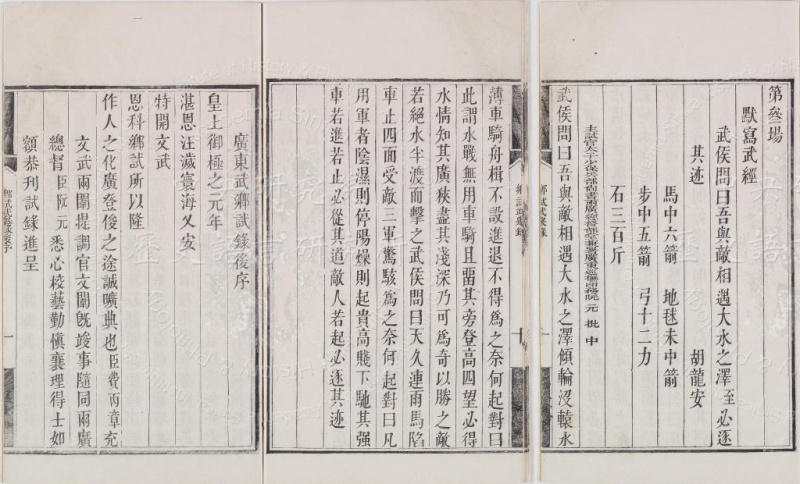 第叁場
默寫武經
武侯問曰吾與敵相遇大水之澤至必逐
其迹
胡龍安
馬中六箭 地毬未中箭
步中五箭 弓十二力
石三百斤
元批中
武侯問曰吾與敵相遇大水之澤傾輪沒轅水
薄車騎舟楫不設進退不得為之奈何起對曰
此謂水戰無用車騎且留其旁登高四望必得
水情知其廣狹盡其淺深乃可為奇以勝之敵
若絕水半渡而擊之武侯問曰天久連雨馬陷
車止四面受敵三軍驚駭為之奈何起對曰凡
用軍者陰濕則停陽燥則起貴高賤下馳其强
車若進若止必從其道敵人若起必逐其迹
鄉試武錄
十
廣東武鄉試錄後序
皇上御極之元年
湛恩汪濊寰海乂安
特開文武
恩科鄉試所以隆
作人之化廣登俊之途誠曠典也臣費丙章充
文武兩闈提調官文闈既竣事隨同兩廣
總督臣阮元悉心校藝勤慎襄理得士如
額恭刊試錄進呈
一